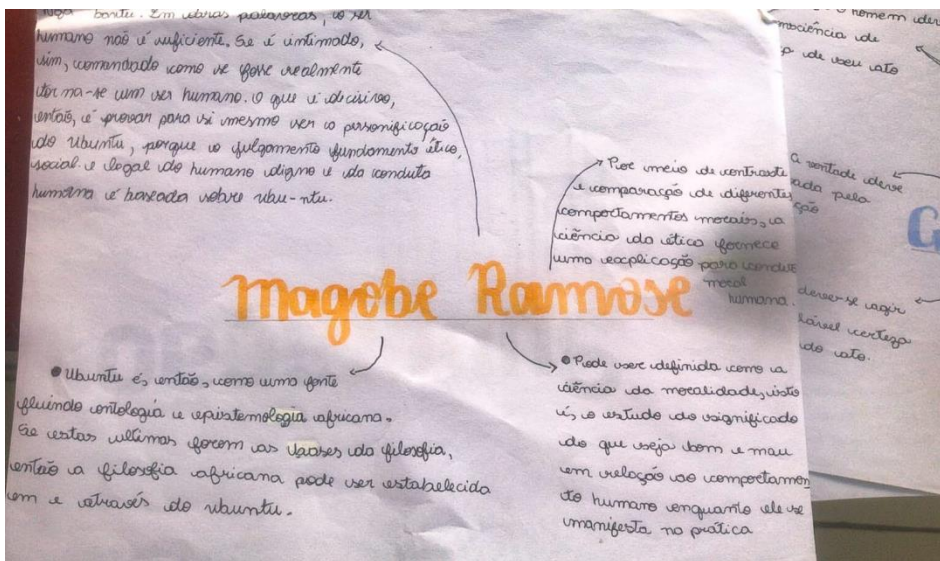 bantu. Em outras palavras, o ser
humano não é suficiente. Se é intimado,
sim, comandado como se fosse realmente
tor na-se um ser humano. O que é decisivo,
então, é provar para si mesmo ser a personificação
do ubuntu, porque o julgamento fundamento ético,
social e legal do humano digno e da conduta
humana é baseada sobre ubu-ntu.
Por meio de contraste
e comparação de diferentes
comportamentos morais, a
ciência da ética fornece
uma explicação para conduta
moral
humana.
Magobe Ramose
• Ubuntu é, então, como uma fonte
fluindo ontologia e epistemologia africana.
Se estas ultimas forem as bases da filosofia,
então a filosofia africana pode ser estabelecida
em e através do ubuntu.
• Pode ser definida como a
ciência da moralidade, isto
é, o estudo do significado
do que seja bom e mau
em relação ao comportamen
to humano enquanto ele se
manifesta na prática
homem
de seu ato
A vontade deve
pela
dever-se agir
certeza
do ato.
G